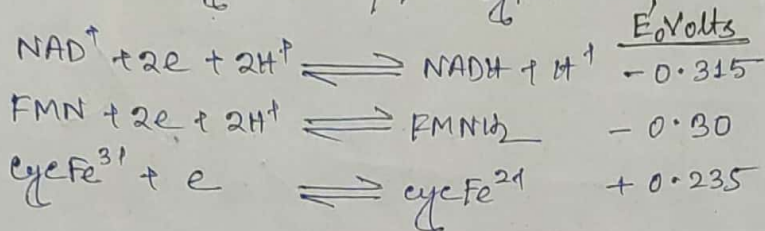 E'₀ Volts
NAD⁺ + 2e + 2H⁺ ⇌ NADH + H⁺ - 0.315
FMN + 2e + 2H⁺ ⇌ FMNH₂ - 0.30
cyc Fe³⁺ + e ⇌ cyc Fe²⁺ + 0.235